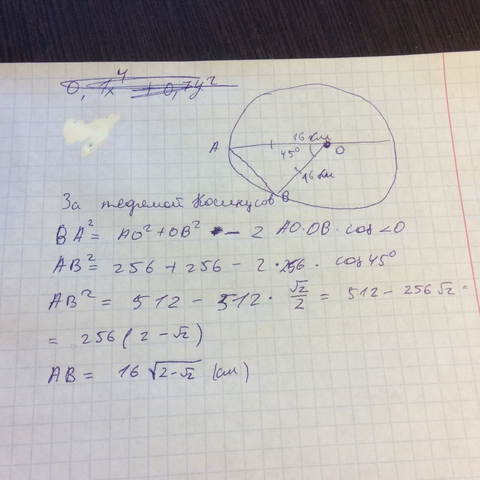 0,7x⁴ + 0,7y²
16 см
A
45°
O
16 см
B
За теоремой Косинусов
BA² = AO² + OB² - 2 AO·OB · cos<O
AB² = 256 + 256 - 2·256 · cos45°
AB² = 512 - 512 · √2/2 = 512 - 256√2 =
= 256(2 - √2)
AB = 16√(2-√2) (см)